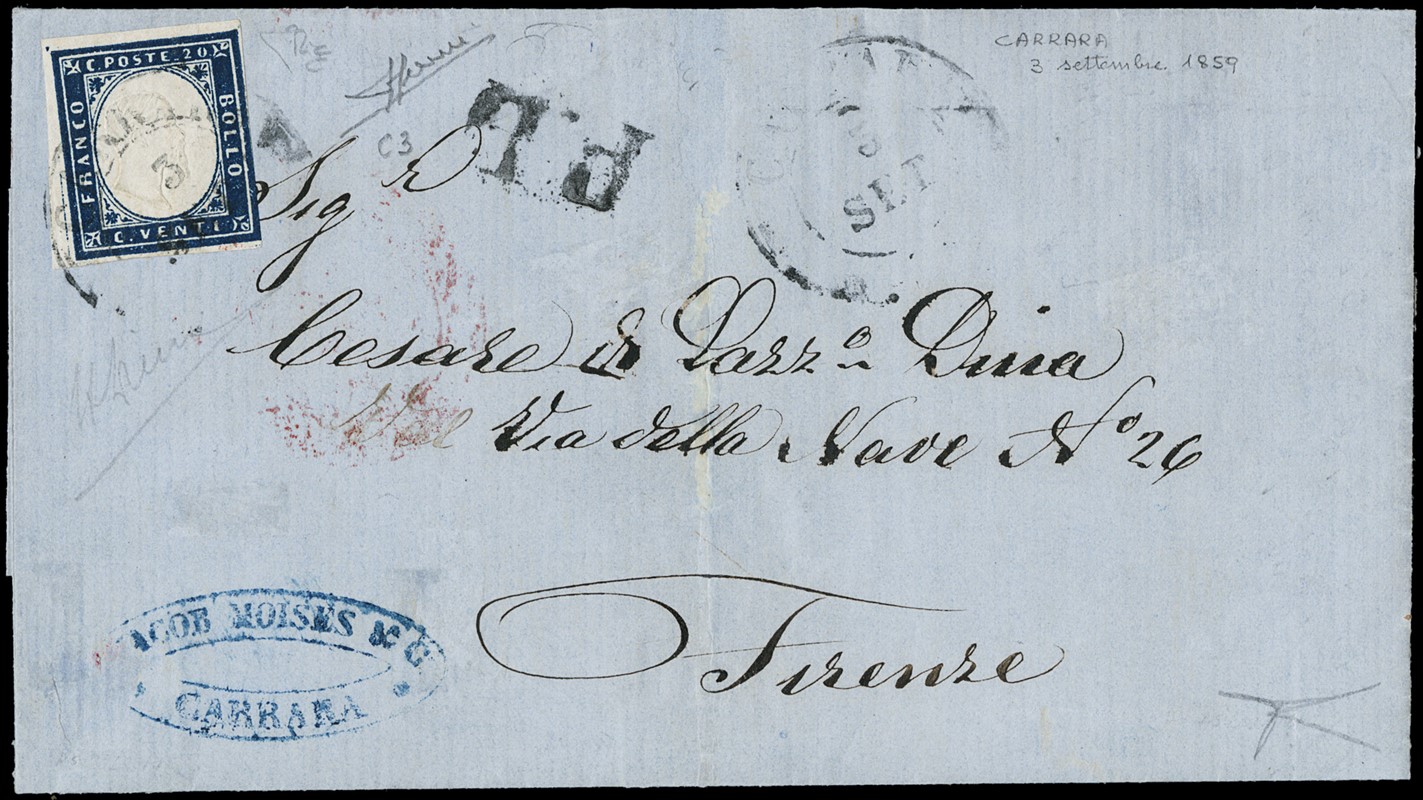 C. POSTE. 20
FRANCO
BOLLO
C. VENTI
3
CARRARA
3 settembre 1859
C3
P.L
3
SET
Sig.r
Cesare di Lazzo Dina
Via della Nave No 26
Firenze
IACOB MOISES & C.
CARRARA